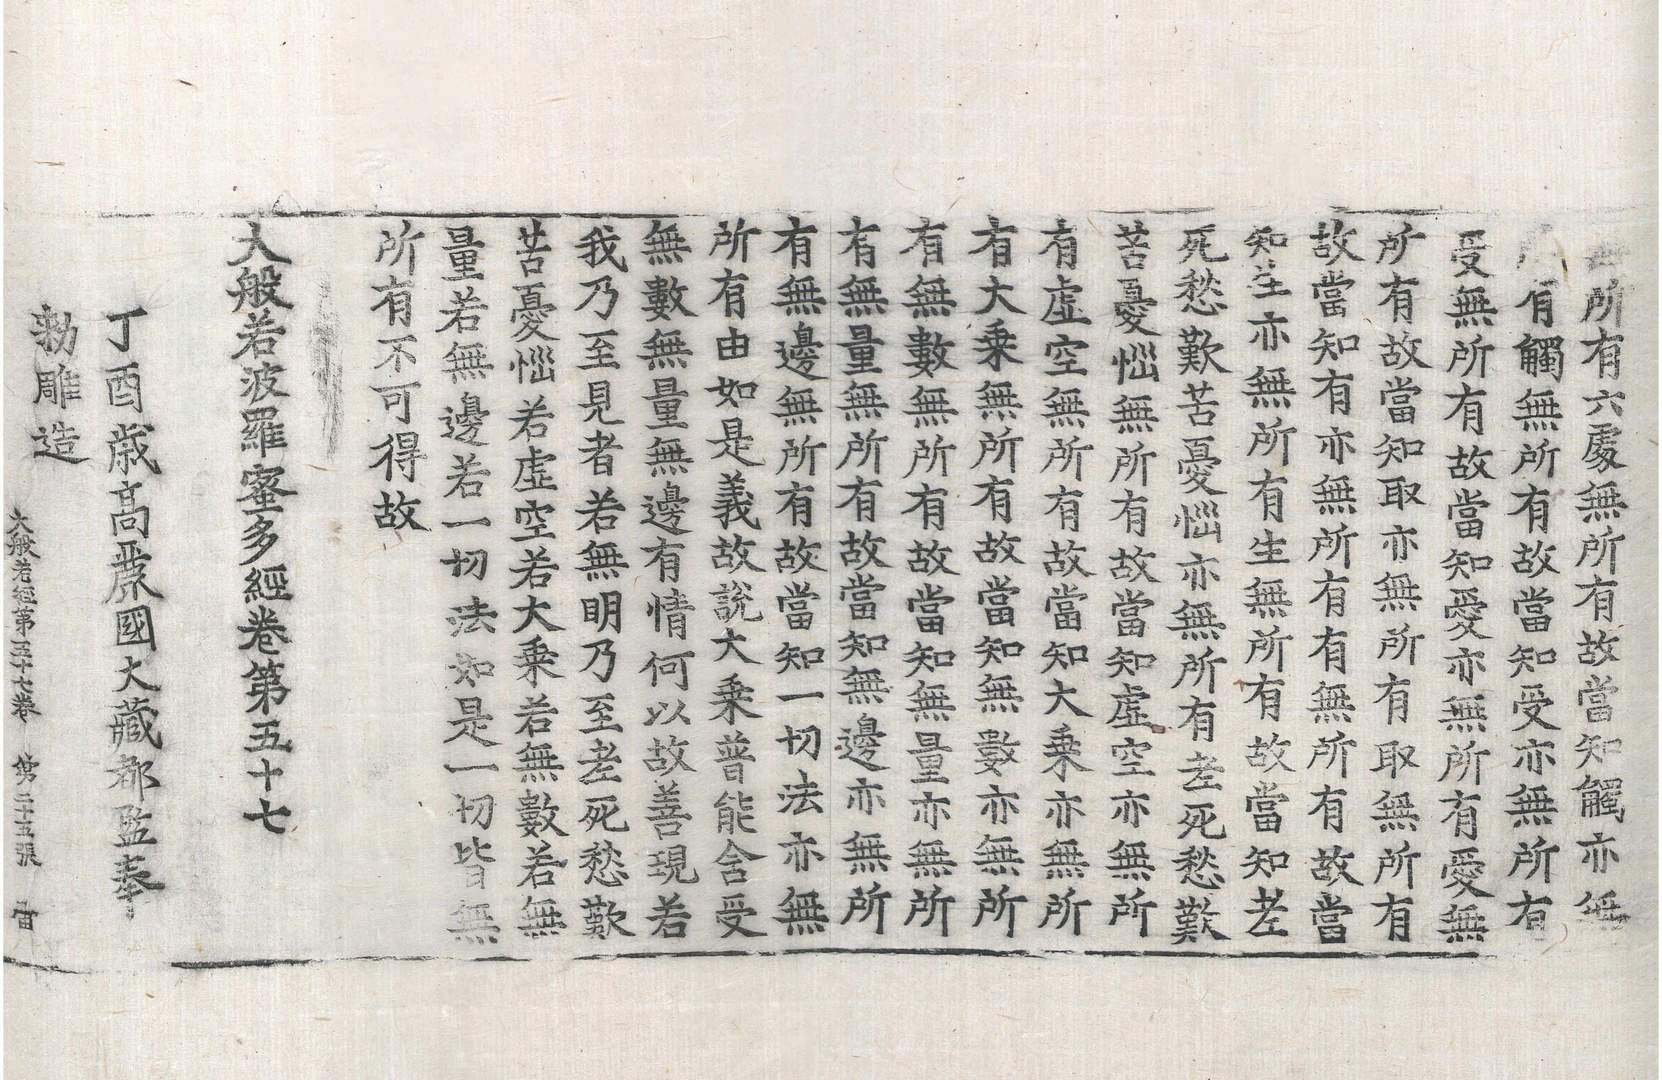 無所有六處無所有故當知觸亦無
所有觸無所有故當知受亦無所有
受無所有故當知愛亦無所有愛無
所有故當知取亦無所有取無所有
故當知有亦無所有有無所有故當
知生亦無所有生無所有故當知老
死愁歎苦憂惱亦無所有老死愁歎
苦憂惱無所有故當知虛空亦無所
有虛空無所有故當知大乘亦無所
有大乘無所有故當知無數亦無所
有無數無所有故當知無量亦無所
有無量無所有故當知無邊亦無所
有無邊無所有故當知一切法亦無
所有由如是義故說大乘普能含受
無數無量無邊有情何以故善現若
我乃至見者若無明乃至老死愁歎
苦憂惱若虛空若大乘若無數若無
量若無邊若一切法如是一切皆無
所有不可得故
大般若波羅蜜多經卷第五十七
丁酉歲高麗國大藏都監奉
勅雕造
大般若經第五十七卷 第二十五張 宙